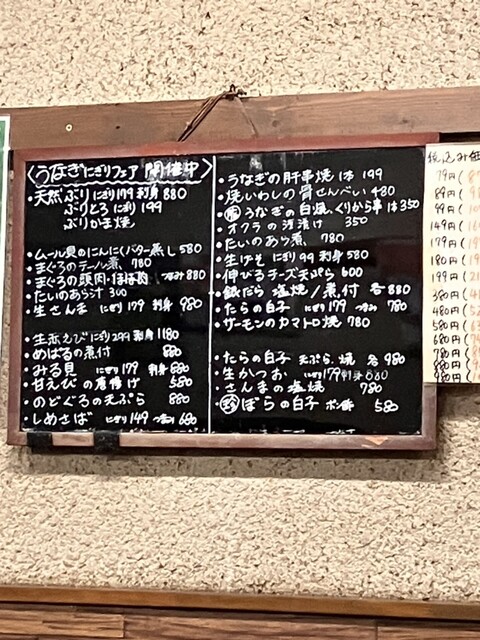 〈うなぎにぎりフェア 開催中〉
天然ぶり にぎり179 刺身 880
ぶりとろ にぎり 199
ぶりかま焼
・ムール貝のにんにくバター蒸し 580
・まぐろのテール煮 780
・まぐろの頭肉・ほほ肉 つまみ 880
・たいのあら汁 300
・生さんま にぎり179 刺身 980
・生赤えび にぎり299 刺身 1180
・めばるの煮付 880
・みる貝 にぎり179 刺身 880
・甘えびの唐揚げ 580
・のどぐろの天ぷら 880
・しめさば にぎり149 つまみ 680
・うなぎの肝串焼 1本 199
・焼いわしの骨せんべい 480
・うなぎの白焼、くりから串 1本 350
・オクラの浅漬け 350
・たいのあら煮 780
・生げそ にぎり 99 刺身 580
・伸びるチーズ天ぷら 600
・銀だら 塩焼/煮付 各 880
・たらの白子 にぎり179 つまみ 780
・サーモンのカマトロ焼 780
・たらの白子 天ぷら、焼 各 980
・生かつお にぎり179 刺身 580
・さんまの塩焼 780
・珍 ぼらの白子 ポン酢 580
税込み価
79円(
89円(
99円(
149円(
179円(
180円(
199円(
380円(
480円(
580円(
680円(
780円(
880円(
980円(